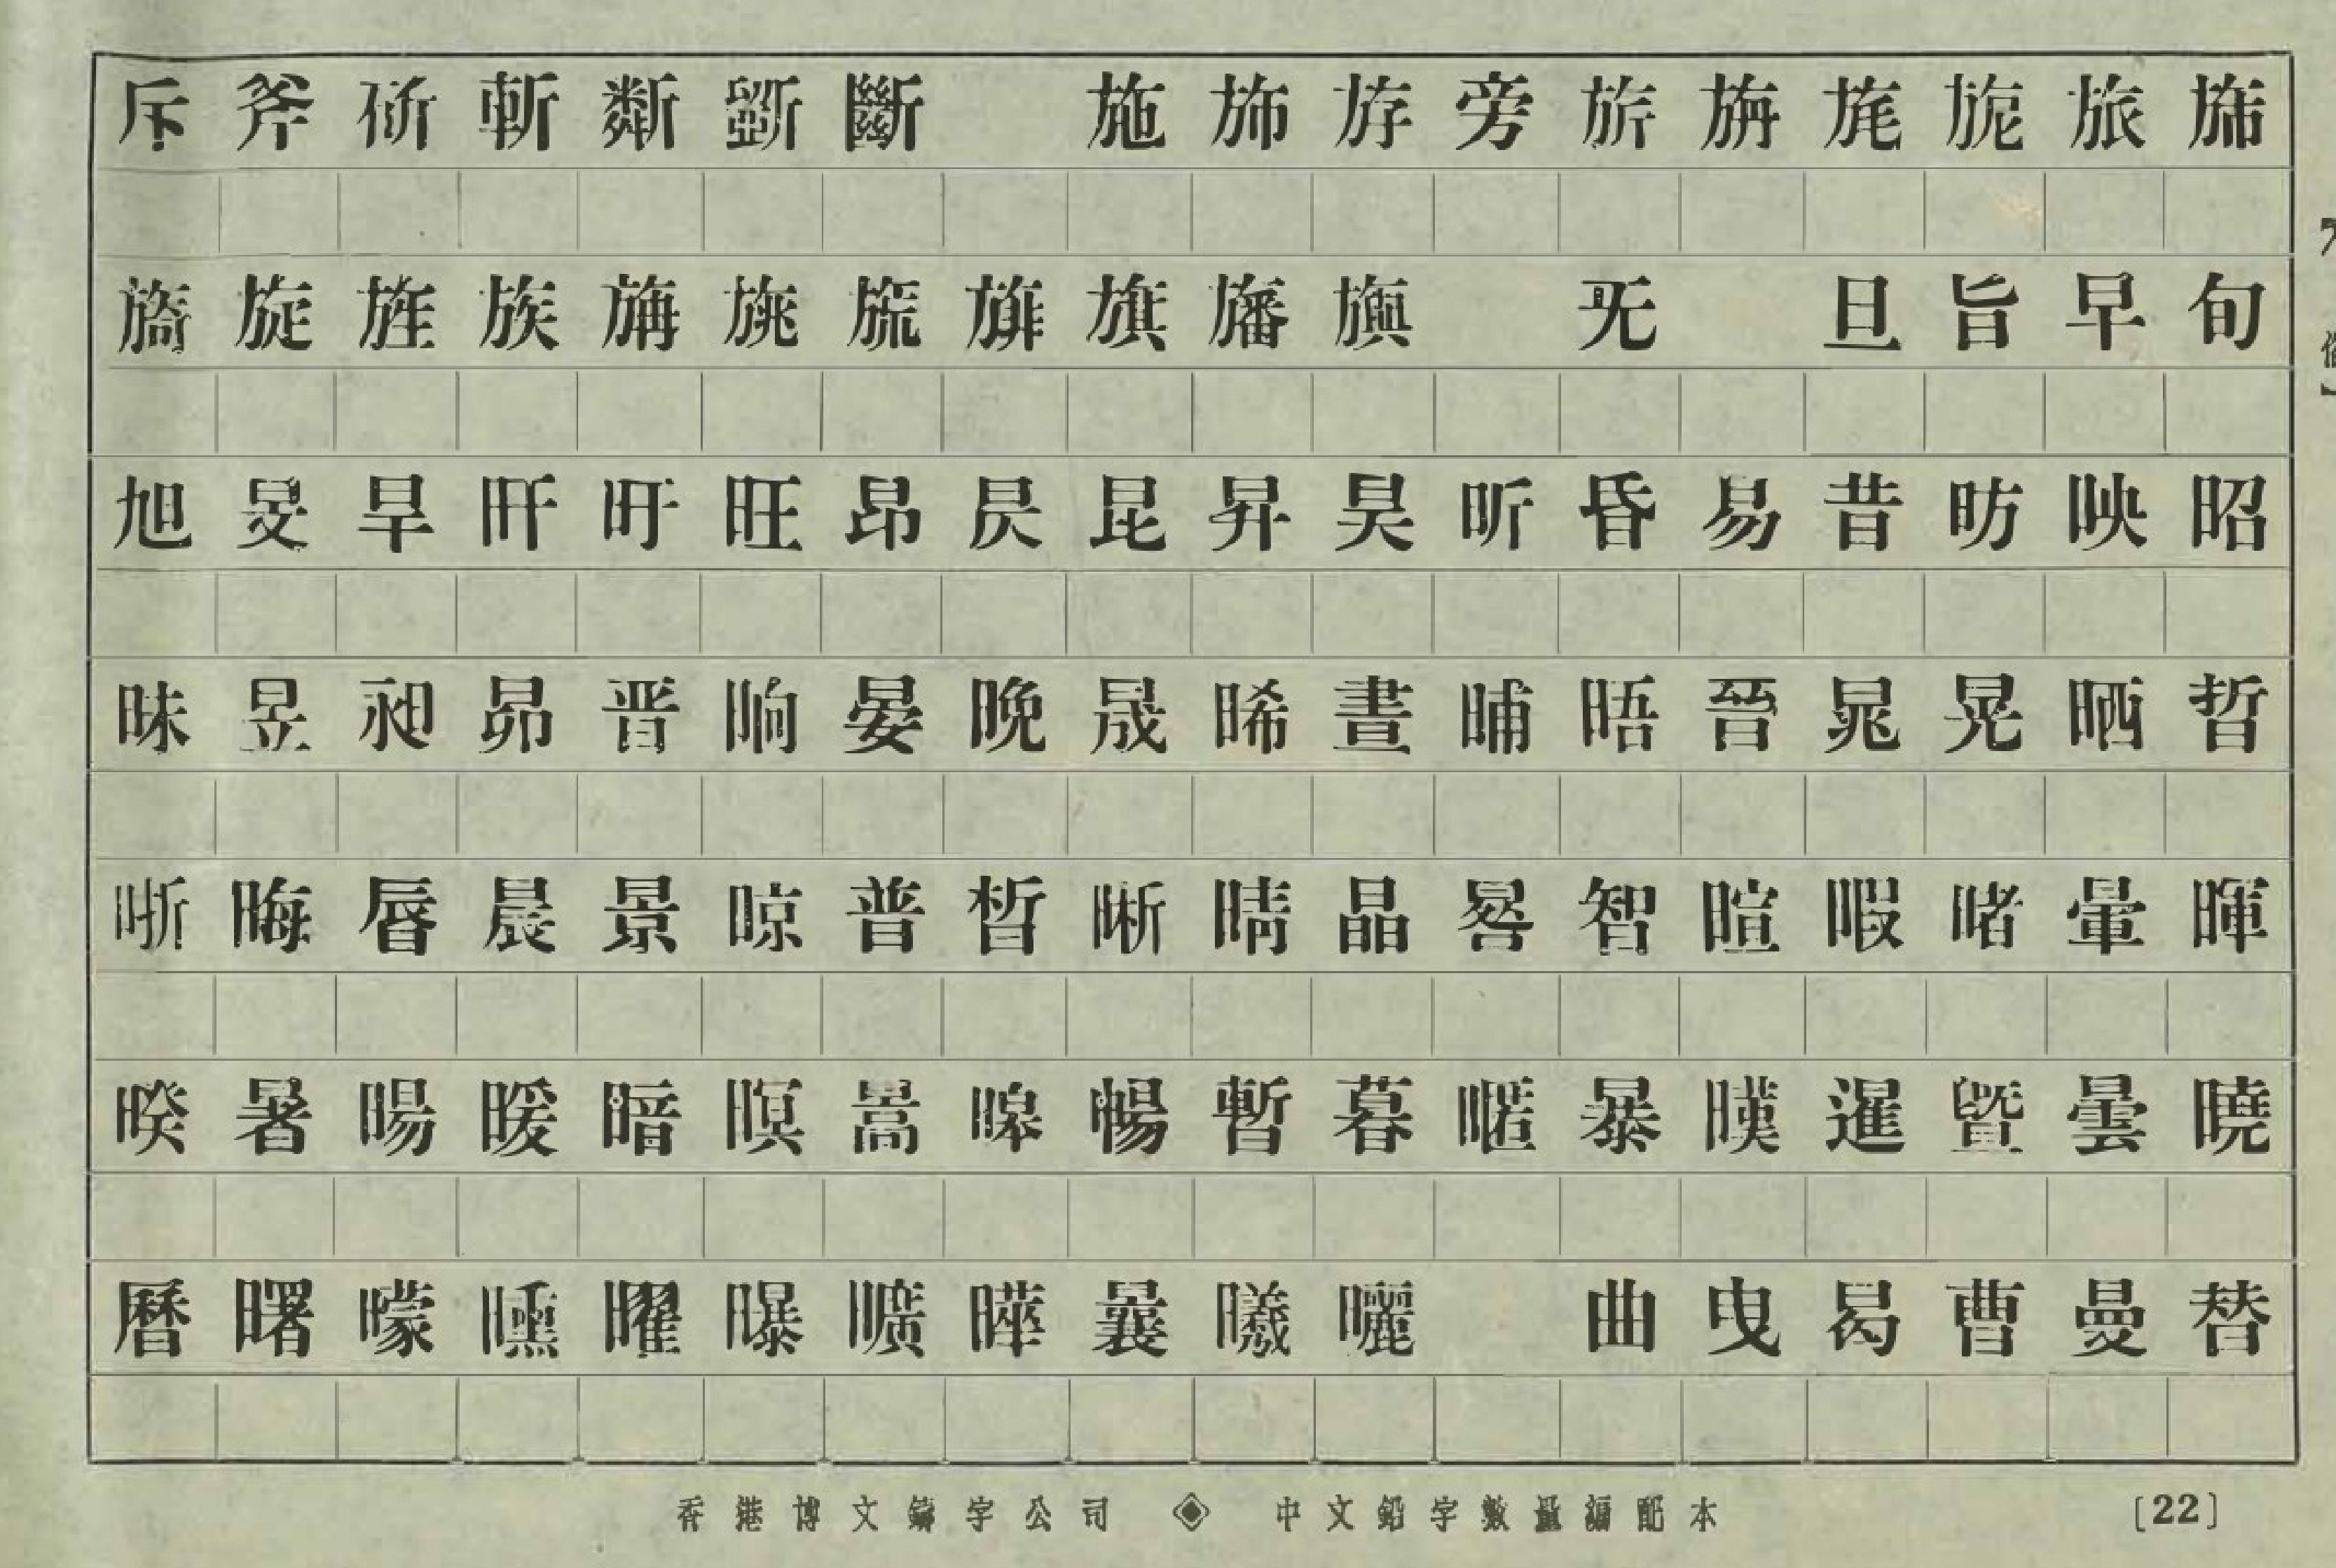 斥 斧 斫 斬 斴 斲 斷 施 斾 斿 旁 旂 旃 旄 旎 旅 旆
旖 旋 旌 族 旐 旒 旗 旛 旟 旡 旦 旨 早 旬
旭 旻 旱 旰 旴 旺 昂 昃 昆 昇 昊 昕 昏 易 昔 昉 映 昭
昧 昱 昶 昴 晋 晌 晏 晚 晟 晞 晝 晡 晤 晉 晁 晃 晒 晢
晣 晦 晨 景 晾 普 晳 晰 晴 晶 晷 智 暄 暇 暏 暈 暉
暌 暑 暘 暖 暗 暝 暠 暢 暫 暮 暱 暴 暵 暹 暨 曇 曉
曆 曙 曚 曛 曜 曝 曠 曄 曩 曦 曬 曲 曳 曷 曹 曼 替
香港博文鑄字公司 ◈ 中文鉛字數量編配本 [22]